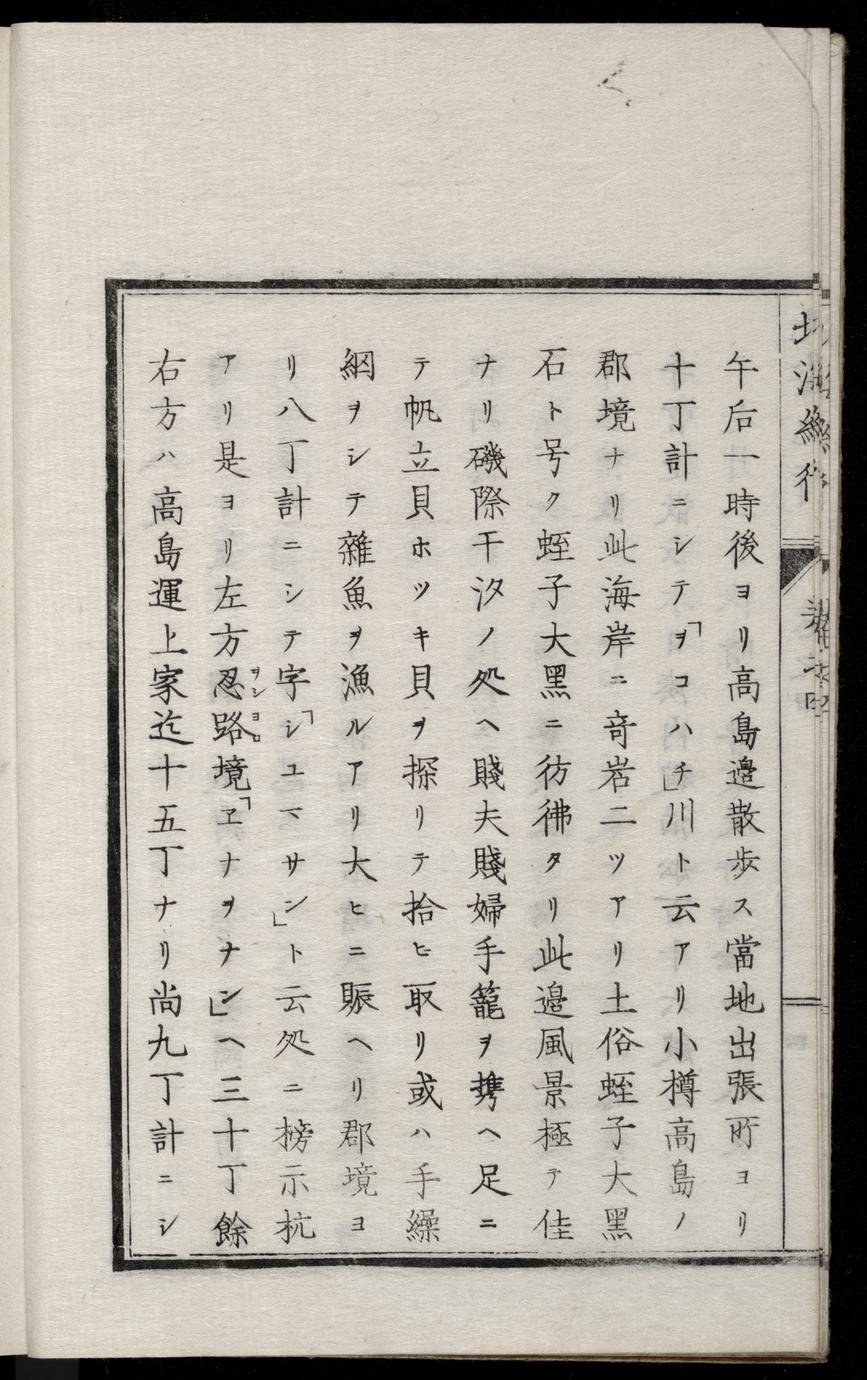 午后一時後ヨリ高島邉散歩ス當地出張所ヨリ
十丁計ニシテ「ヲコハチ」川ト云アリ小樽高島ノ
郡境ナリ此海岸ニ竒岩二ツアリ土俗蛭子大黑
石ト号ク蛭子大黑ニ彷彿タリ此邉風景極テ佳
ナリ磯際干汐ノ処ヘ賤夫賤婦手籠ヲ携ヘ足ニ
テ帆立貝ホツキ貝ヲ探リテ拾ヒ取リ或ハ手繰
網ヲシテ雜魚ヲ漁ルアリ大ヒニ賑ヘリ郡境ヨ
リ八丁計ニシテ字「シユマサン」ト云処ニ榜示杭
アリ是ヨリ左方忍路境「ヱナヲナシ」ヘ三十丁餘
ヲシヨロ
右方ハ高島運上家迄十五丁ナリ尚九丁計ニシ